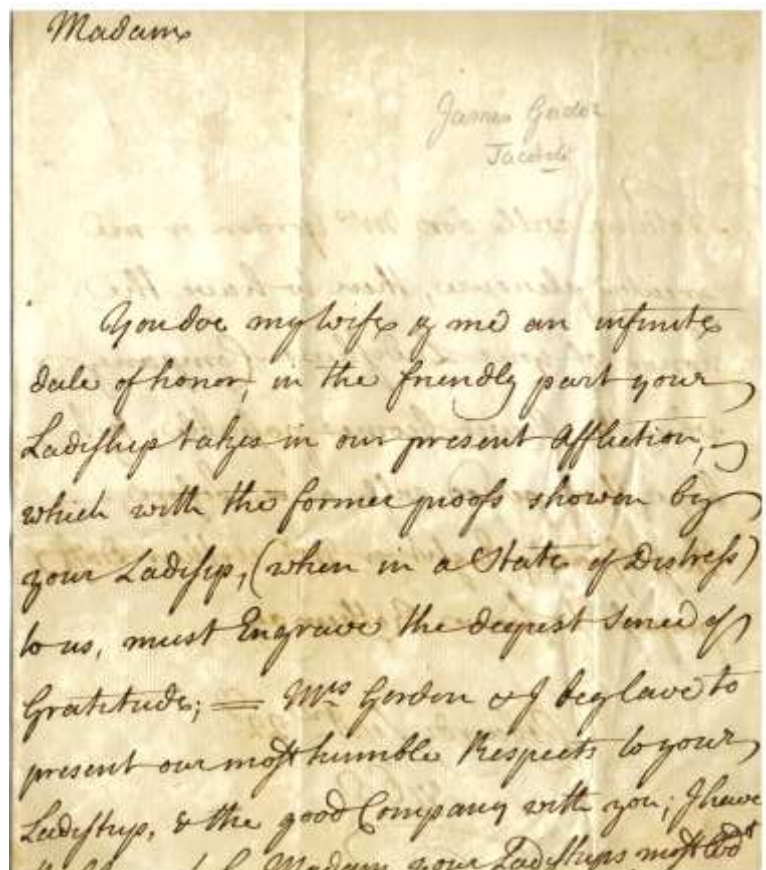 Madam
James Gordon
Jacobite
You doe my wife & me an infinite
dale of honor, in the friendly part your
Ladiship takes in our present Affliction,
which with the former proofs showen by
your Ladisip, (when in a State of Distress)
to us, must Engrave the deepest Senced of
Gratitude; = Mrs Gordon & I beg lave to
present our most humble Respects to your
Ladiship, & the good Company with you; I have
Madam your Ladiships most